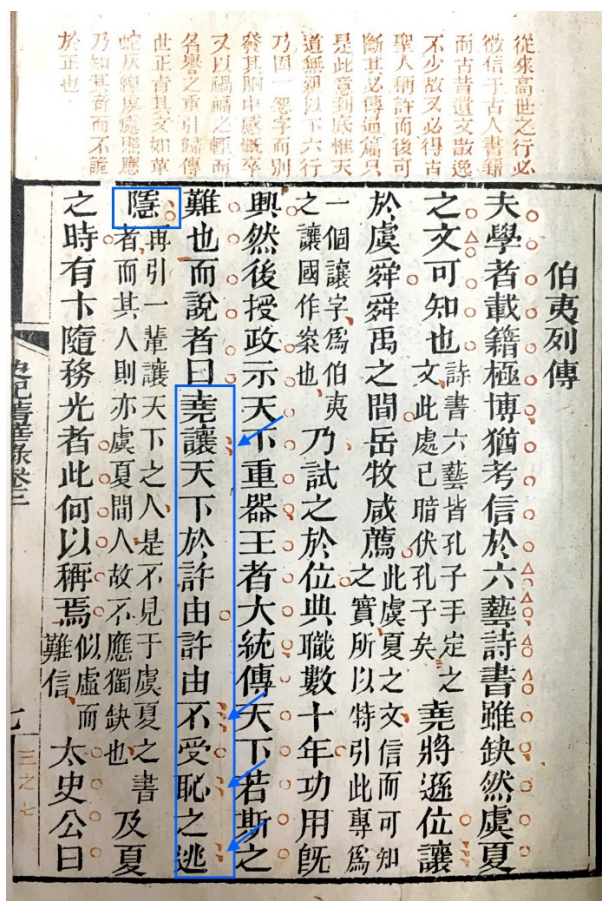 從來高世之行必
徵信于古人書籍
而古昔遺文散逸
不少故又必得古
聖人稱許而後可
斷其必傳這篇只
是此意到底惟天
道無親以下六行
乃因一怨字而別
發其胸中感慨卒
又以禍福之輕而
名譽之重引歸傳
世正旨其文如草
蛇灰線處處照應
乃知其奇而不詭
於正也
伯夷列傳
夫學者載籍極博猶考信於六藝詩書雖缺然虞夏
之文可知也詩書六藝皆孔子手定之文此處已暗伏孔子矣堯將遜位讓
於虞舜舜禹之間岳牧咸薦此虞夏之文信而可知之實所以特引此專爲
一個讓字爲伯夷之讓國作案也乃試之於位典職數十年功用旣
興然後授政示天下重器王者大統傳天下若斯之
難也而說者曰堯讓天下於許由許由不受恥之逃
隱再引一輩讓天下之人是不見于虞夏之書者而其人則亦虞夏間人故不應獨缺也及夏
之時有卞隨務光者此何以稱焉似虛而難信太史公曰
史記菁華錄卷三
七
三之七